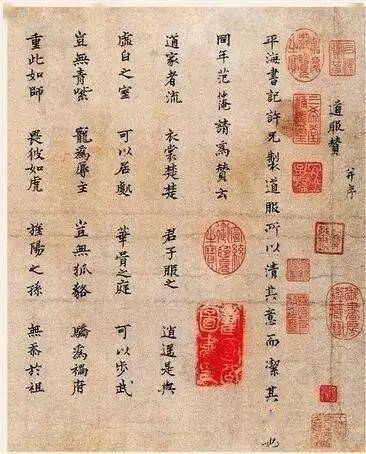 道服贊 并序
平海書記許兄製道服所以清其意而潔其 也
同年范淹請為贊云
道家者流 衣裳楚楚 君子服之 逍遙是與
虛白之室 可以居處 華胥之庭 可以步武
豈無青紫 寵為辱主 豈無狐貉 驕為禍府
重此如師 畏彼如虎 旌陽之孫 無忝於祖